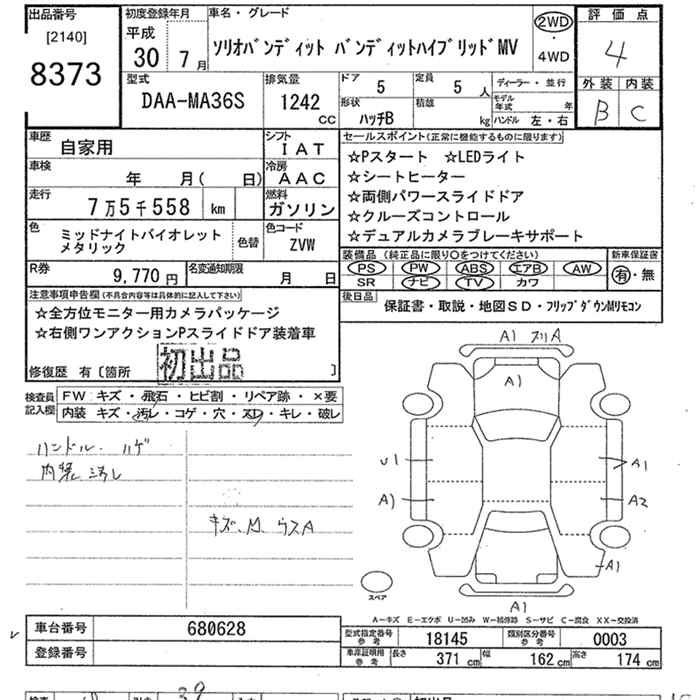 出品番号
[2140]
8373
初度登録年月
平成
30 7月
車名・グレード
ソリオバンディット バンディットハイブリッドMV
2WD
・
4WD
評価点
4
外装 内装
B C
型式
DAA-MA36S
排気量
1242
CC
ドア
5
定員
5 人
形状
ハッチB
積雄
kg
ディーラー・並行
モデル年式 年
ハンドル 左・右
車歴
自家用
シフト
IAT
車検
年 月( 日)
冷房
AAC
走行
7万5千558 km
燃料
ガソリン
色
ミッドナイトバイオレット
メタリック
色替
色コード
ZVW
R券
9,770円
名変通知期限
月 日
セールスポイント(正常に機能するものに限ります)
☆Pスタート ☆LEDライト
☆シートヒーター
☆両側パワースライドドア
☆クルーズコントロール
☆デュアルカメラブレーキサポート
装備品(純正品に限り〇をつけてください)
PS PW ABS エアB AW
SR ナビ TV カワ
新車保証書
有・無
後日品
保証書・取説・地図SD・フリップダウンMリモコン
注意事項申告欄(不具合内容等は具体的に記入して下さい)
☆全方位モニター用カメラパッケージ
☆右側ワンアクションPスライドドア装着車
初出品
修復歴 有〔箇所 〕
検査員
記入欄
FW キズ・飛石・ヒビ割・リペア跡・×要
内装 キズ・汚レ・コゲ・穴・スレ・キレ・破レ
ハンドル ハゲ
内装 汚れ
キズ、M、ウスA
A1 ズリA
A1
U1
A1
A1
A2
A1
A1
スペア
A-キズ E-エクボ U-凹み W-補修跡 S-サビ C-腐食 XX-交換済
車台番号
680628
登録番号
型式指定番号
参考
18145
類別区分番号
参考
0003
車庫証明用
参考
長さ
371 cm
幅
162 cm
高さ
174 cm
39